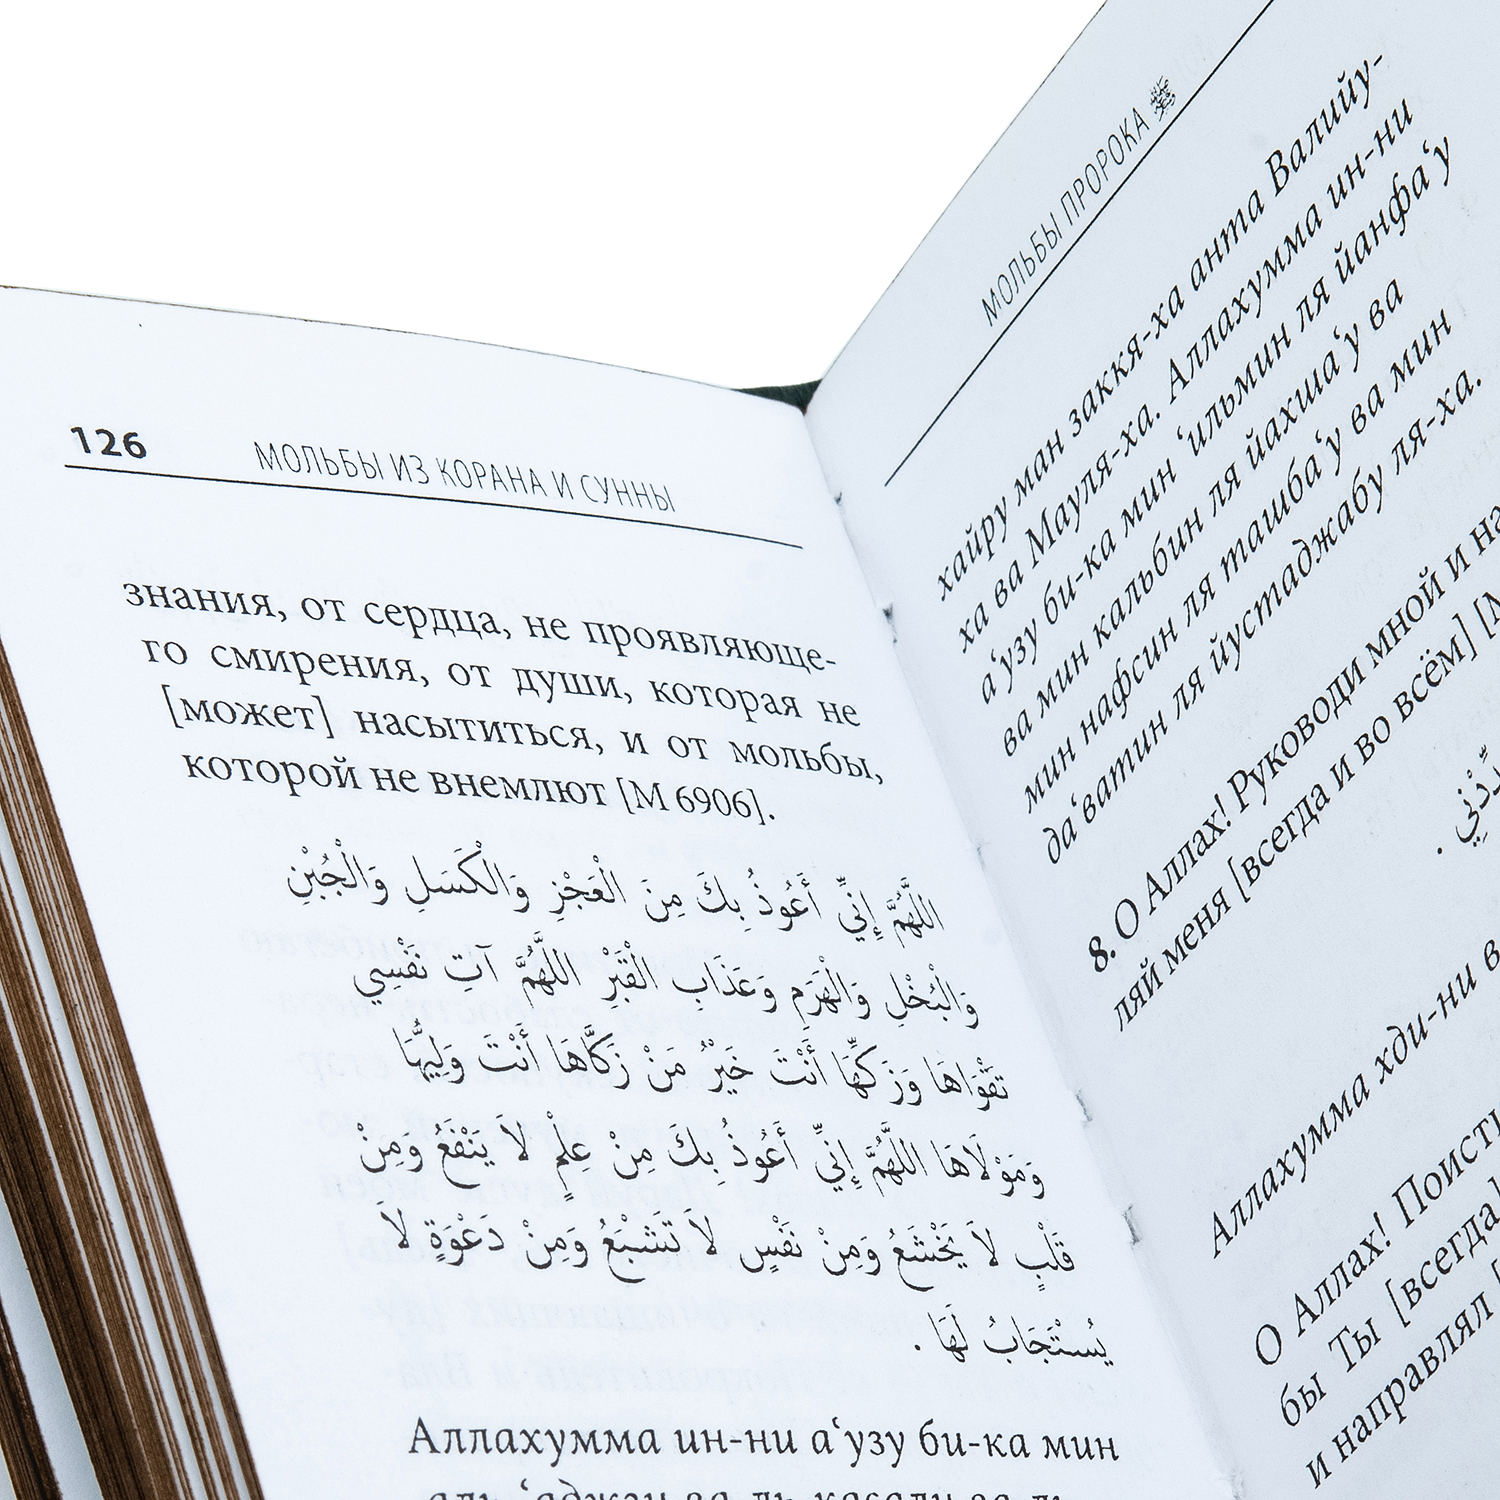 126 МОЛЬБЫ ИЗ КОРАНА И СУННЫ
знания, от сердца, не проявляюще-
го смирения, от души, которая не
[может] насытиться, и от мольбы,
которой не внемлют [М 6906].
اللَّهُمَّ إِنِّي أَعُوذُ بِكَ مِنَ الْعَجْزِ وَالْكَسَلِ وَالْجُبْنِ
وَالْبُخْلِ وَالْهَرَمِ وَعَذَابِ الْقَبْرِ اللَّهُمَّ آتِ نَفْسِي
تَقْوَاهَا وَزَكِّهَا أَنْتَ خَيْرُ مَنْ زَكَّاهَا أَنْتَ وَلِيُّهَا
وَمَوْلَاهَا اللَّهُمَّ إِنِّي أَعُوذُ بِكَ مِنْ عِلْمٍ لاَ يَنْفَعُ وَمِنْ
قَلْبٍ لاَ يَخْشَعُ وَمِنْ نَفْسٍ لاَ تَشْبَعُ وَمِنْ دَعْوَةٍ لاَ
يُسْتَجَابُ لَهَا .
Аллахумма ин-ни а‘узу би-ка мин
МОЛЬБЫ ПРОРОКА ﷺ
хайру ман заккя-ха анта Валийу-
ха ва Мауля-ха. Аллахумма ин-ни
а‘узу би-ка мин ‘ильмин ля йанфа‘у
ва мин кальбин ля йахша‘у ва
мин нафсин ля ташба‘у ва мин
да‘ватин ля йустаджабу ля-ха.
8. О Аллах! Руководи мной и на
ляй меня [всегда и во всём] [М
Аллахумма хди-ни в
О Аллах! Поисти
бы Ты [всегда]
и направлял [